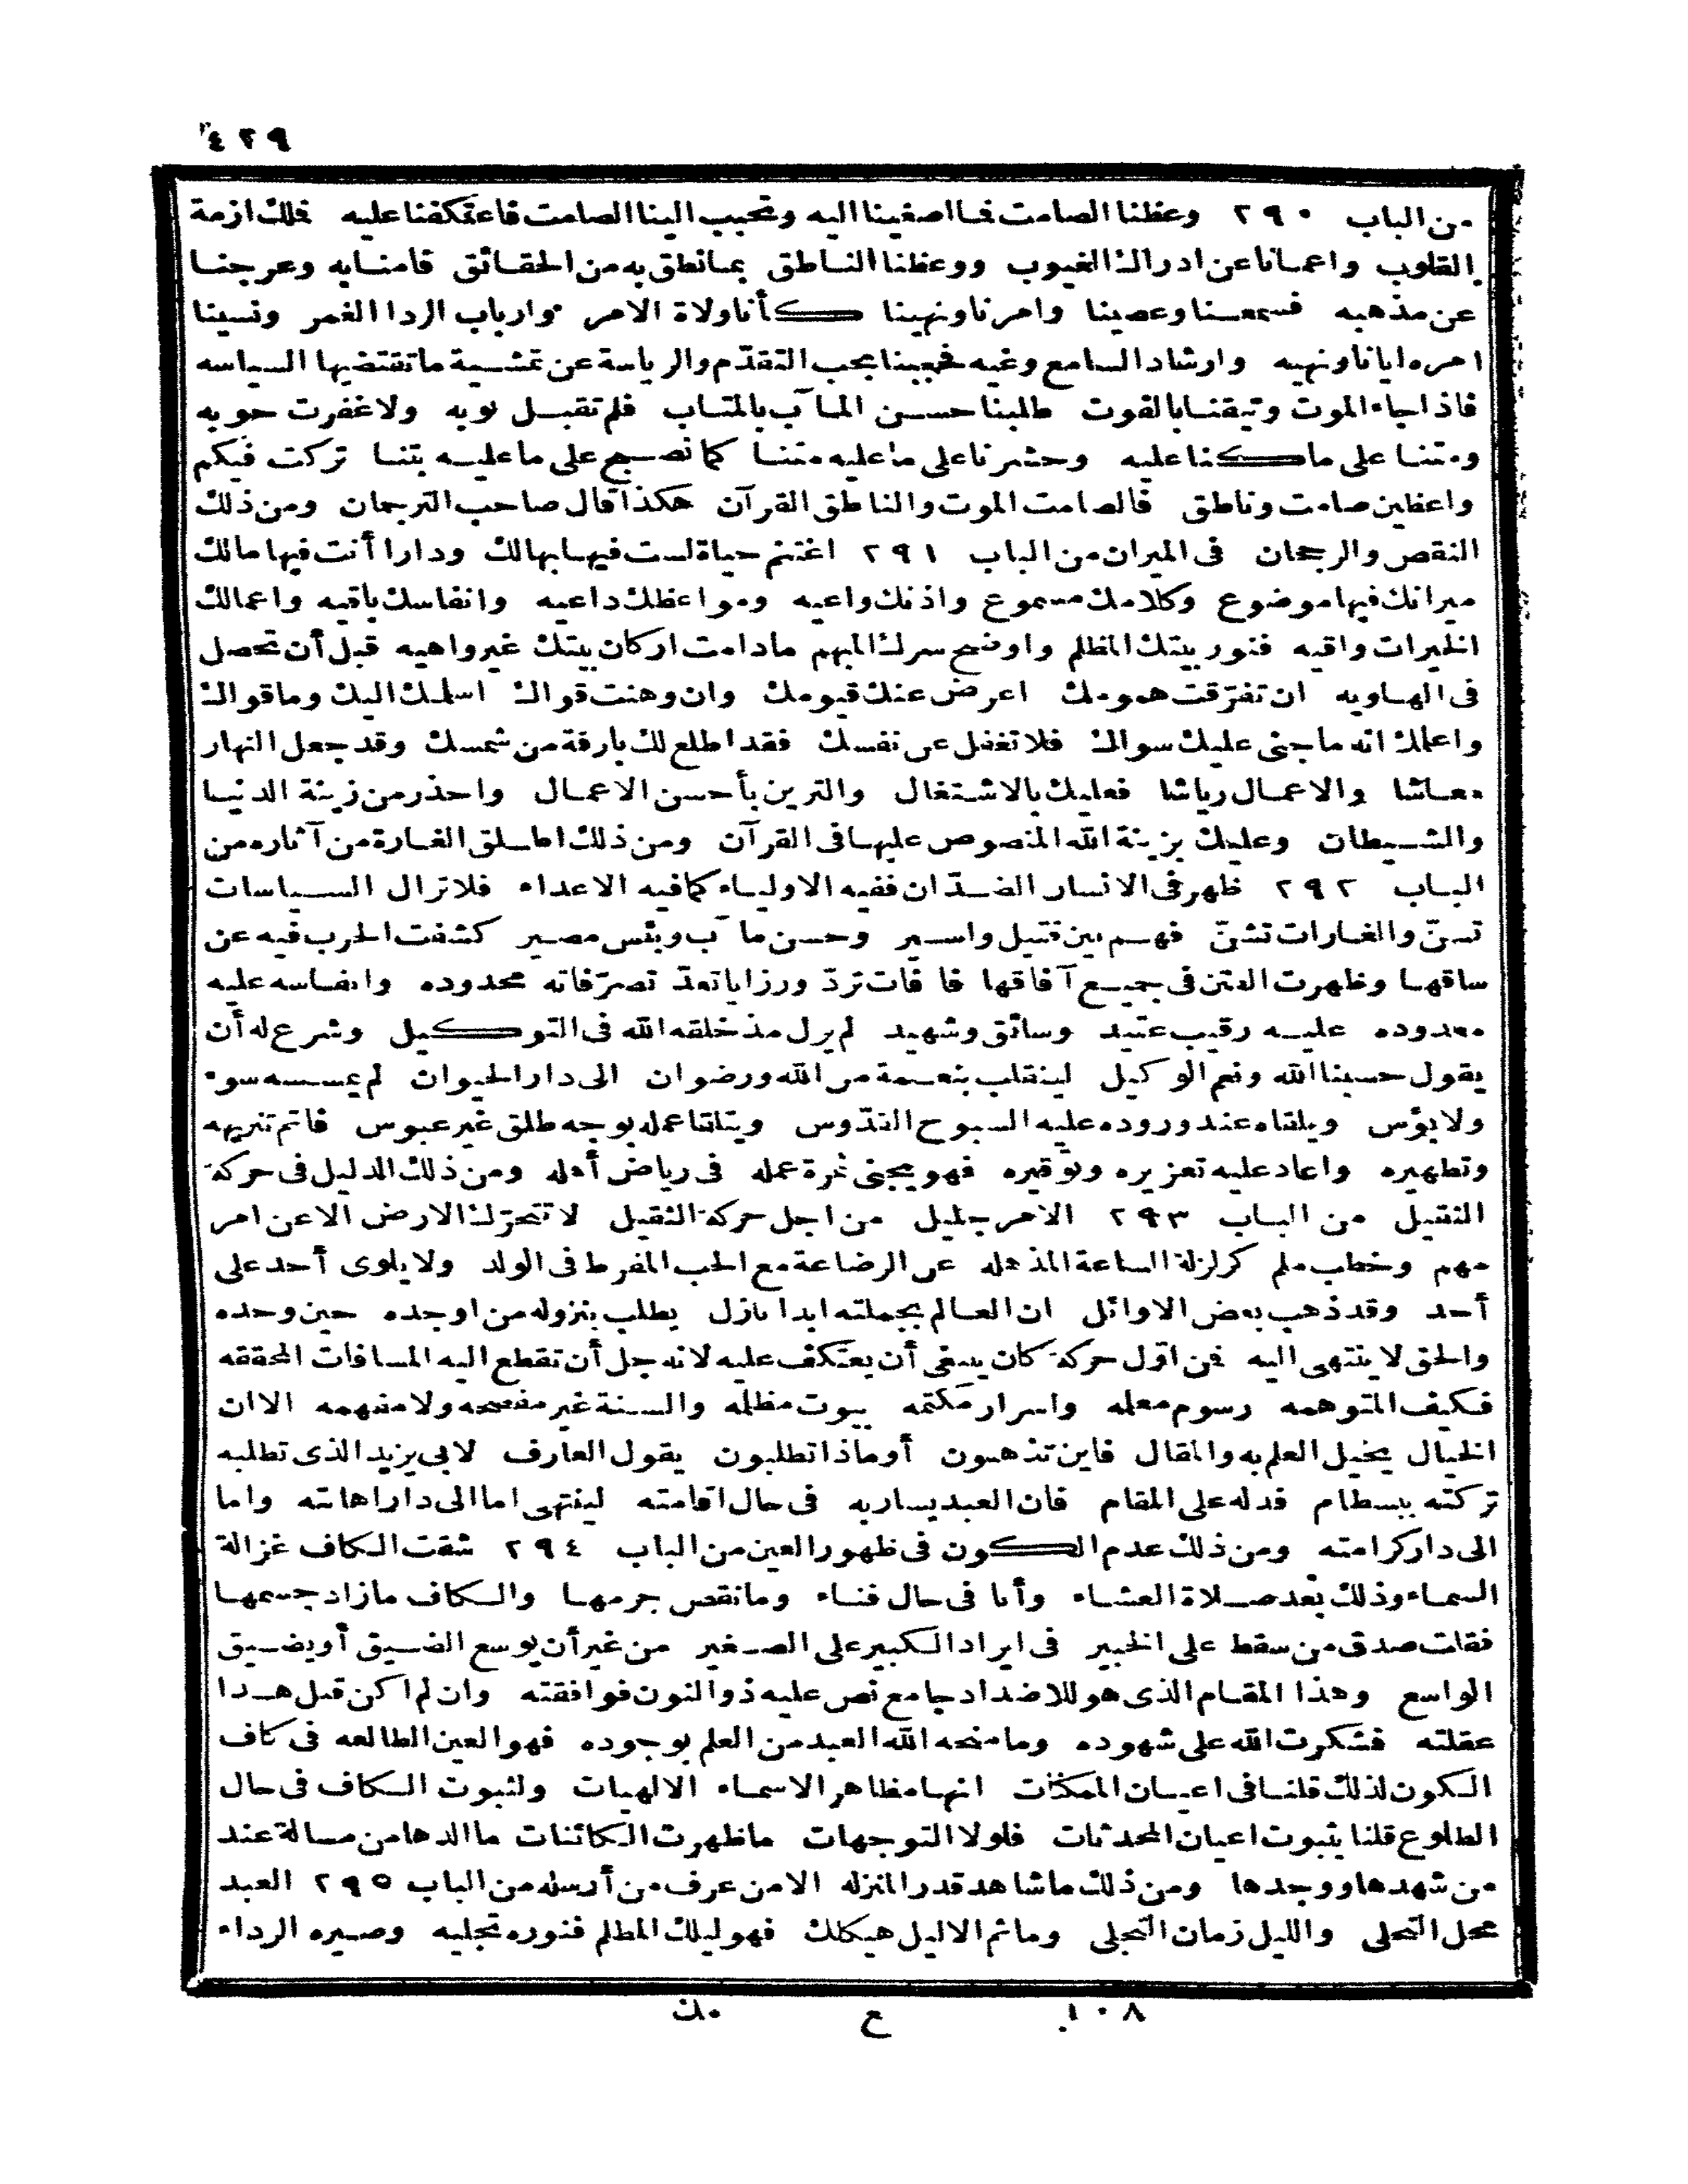 ٤٢٩
من الباب ٢٩٠ وعظنا الصامت فما اصغينا اليه وتحبب الينا الصامت فاعتكفنا عليه فملك ازمة
القلوب واعمانا عن ادراك الغيوب ووعظنا الناطق بما نطق به من الحقائق فامنا به وعرجنا
عن مذهبه فسمعنا وعصينا وامرنا ونهينا كأنا ولاة الامر وارباب الردا الغمر ونسينا
امره ايانا ونهيه وارشاد السامع وغيه فحجبنا بحب التقدّم والرياسة عن تمشية ما تقتضيها السياسه
فاذا جاء الموت وتيقنا بالفوت طلبنا حسن المآب بالمتاب فلم تقبل توبه ولا غفرت حوبه
ومتنا على ما كنا عليه وحشرنا على ما عليه متنا كما نصبح على ما عليه بتنا تركت فيكم
واعظين صامت وناطق فالصامت الموت والناطق القرآن هكذا قال صاحب الترجمان ومن ذلك
النقص والرجحان فى الميزان من الباب ٢٩١ اغتنم حياة لست فيها بهالك ودارا أنت فيها مالك
ميزانك فيها موضوع وكلامك مسموع واذنك واعيه ومواعظك داعيه وانفاسك باقيه واعمالك
الخيرات واقيه فنور بيتك المظلم واوضح سرك المبهم مادامت اركان بيتك غير واهيه قبل أن تحصل
فى الهاويه ان تفرّقت همومك اعرض عنك قيومك وان وهنت قواك اسلمك اليك وما قواك
واعلمك انه ما جنى عليك سواك فلا تغفل عن نفسك فقد اطلع لك بارقة من شمسك وقد جعل النهار
معاشا والاعمال رياشا فعليك بالاشتغال والتزين بأحسن الاعمال واحذر من زينة الدنيا
والشيطان وعليك بزينة الله المنصوص عليها فى القرآن ومن ذلك اطلق الغارة من آثاره من
الباب ٢٩٢ ظهر فى الانسان الضدّان ففيه الاولياء كما فيه الاعداء فلا تزال السياسات
تسنّ والغارات تشنّ فهم بين قتيل واسير وحسن مآب وبئس مصير كشفت الحرب فيه عن
ساقها وظهرت الفتن فى جميع آفاقها فآفات تردّ ورزايا تعدّ تصرّفاته محدوده وانفاسه عليه
معدوده عليه رقيب عتيد وسائق وشهيد لم يزل مذ خلقه الله فى التوكيل وشرع له أن
يقول حسبنا الله ونعم الوكيل لينقلب بنعمة من الله ورضوان الى دار الحيوان لم يمسسه سوء
ولا بؤس ويلقاه عند وروده عليه السبوح القدّوس ويتلقا عمله بوجه طلق غير عبوس فاتم تنزيهه
وتطهيره واعاد عليه تعزيره وتوقيره فهو يجنى ثمرة عمله فى رياض أمله ومن ذلك الدليل فى حركة
الثقيل من الباب ٢٩٣ الامر جليل من اجل حركة الثقيل لا تتحرّك الارض الا عن امر
مهم وخطب ملم كزلزلة الساعة المذهله عن الرضاعة مع الحب المفرط فى الولد ولا يلوى أحد على
أحد وقد ذهب بعض الاوائل ان العالم بجملته ابدا نازل يطلب بنزوله من اوجده حين وحده
والحق لا ينتهى اليه فمن اوّل حركة كان ينبغى أن يعتكف عليه لانه جل أن تقطع اليه المسافات المحققه
فكيف المتوهمه رسوم معلمه واسرار مكتمه بيوت مظلمه والسنة غير مفصحه ولا مفهمه الا ان
الخيال يخيل العلم به والمقال فاين تذهبون أو ماذا تطلبون يقول العارف لابى يزيد الذى تطلبه
تركته ببسطام فدله على المقام فان العبد يسار به فى حال اقامته لينتهى اما الى دار اهانته واما
الى دار كرامته ومن ذلك عدم الكون فى ظهور العين من الباب ٢٩٤ شقت الكاف غزالة
السماء وذلك بعد صلاة العشاء وأنا فى حال فناء وما نقص جرمها والكاف ما زاد جسمها
فقلت صدق من سقط على الخبير فى ايراد الكبير على الصغير من غير أن يوسع الضيق أو يضيق
الواسع وهذا المقام الذى هو للاضداد جامع نص عليه ذو النون فوافقته وان لم اكن قبل هذا
عقلته فشكرت الله على شهوده وما منحه الله العبد من العلم بوجوده فهو العين الطالعه فى كاف
الكون لذلك قلنا فى اعيان الممكنات انها مظاهر الاسماء الالهيات ولثبوت الكاف فى حال
الطلوع قلنا بثبوت اعيان المحدثات فلولا التوجهات ما ظهرت الكائنات ما الدها من مسالة عند
من شهدها ووجدها ومن ذلك ما شاهد قدر المنزله الا من عرف من أرسله من الباب ٢٩٥ العبد
محل التجلى والليل زمان التجلى وما ثم الا ليل هيكلك فهو ليلك المظلم فنوره تجليه وصيره الرداء
١٠٨ ع مك